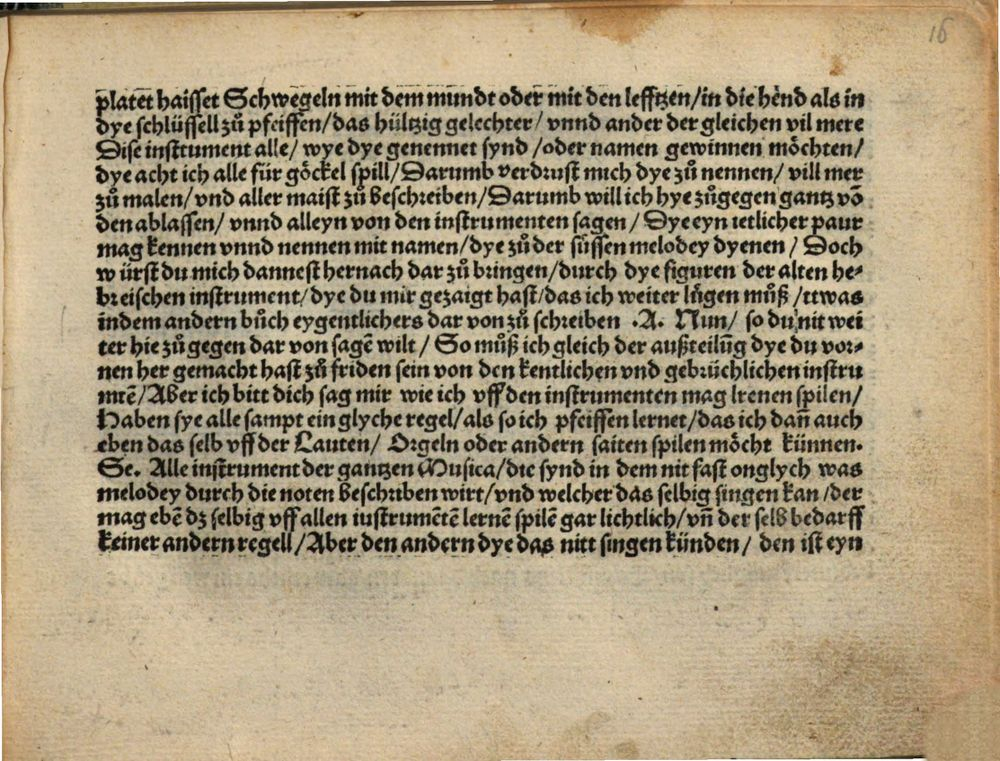 16
platet haisset Schwegeln mit dem mundt oder mit den lefftzen/in die hēnd als in
dye schlüssell zů pfeiffen/das hültzig gelechter/ vnnd ander der gleichen vil mere
Dise instrument alle/ wye dye genennet synd /oder namen gewinnen möchten/
dye acht ich alle für göckel spill/Darumb verdrust mich dye zů nennen/ vill mer
zů malen/ vnd aller maist zů beschreiben/Darumb will ich hye zůgegen gantz vō
den ablassen/ vnnd alleyn von den instrumenten sagen/ Dye eyn ietlicher paur
mag kennen vnnd nennen mit namen/dye zů der süssen melodey dyenen/ Doch
würst du mich dannest hernach dar zů bringen/durch dye figuren der alten he⸗
breischen instrument/dye du mir gezaigt hast/das ich weiter lůgen můß/ttwas
indem andern bůch eygentlichers dar von zů schreiben .A. Nun/ so du nit wei
ter hie zů gegen dar von sagē wilt/ So můß ich gleich der außteilūg dye du vor⸗
nen her gemacht hast zů friden sein von den kentlichen vnd gebrüchlichen instru
mtē/Aber ich bitt dich sag mir wie ich vff den instrumenten mag lrenen spilen/
Haben sye alle sampt ein glyche regel/als so ich pfeiffen lernet/das ich dañ auch
eben das selb vff der Lauten/ Orgeln oder andern saiten spilen möcht künnen.
Se. Alle instrument der gantzen Musica/die synd in dem nit fast onglych was
melodey durch die noten beschriben wirt/vnd welcher das selbig singen kan/der
mag ebē dz selbig vff allen iustrumētē lernē spilē gar lichtlich/vñ der selb bedarff
keiner andern regell/Aber den andern dye das nitt singen künden/ den ist eyn